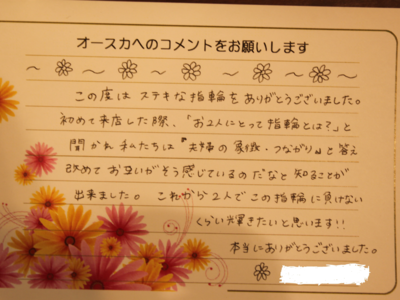 オースカへのコメントをお願いします
この度は ステキな指輪を ありがとうございました。
初めて来店した際、「お2人にとって指輪とは?」と
聞かれ 私たちは『夫婦の象徴・つながり』と答え
改めて お互いがそう感じているのだなと 知ることが
出来ました。 これから2人で この指輪に負けない
くらい輝きたいと思います!!
本当にありがとうございました。